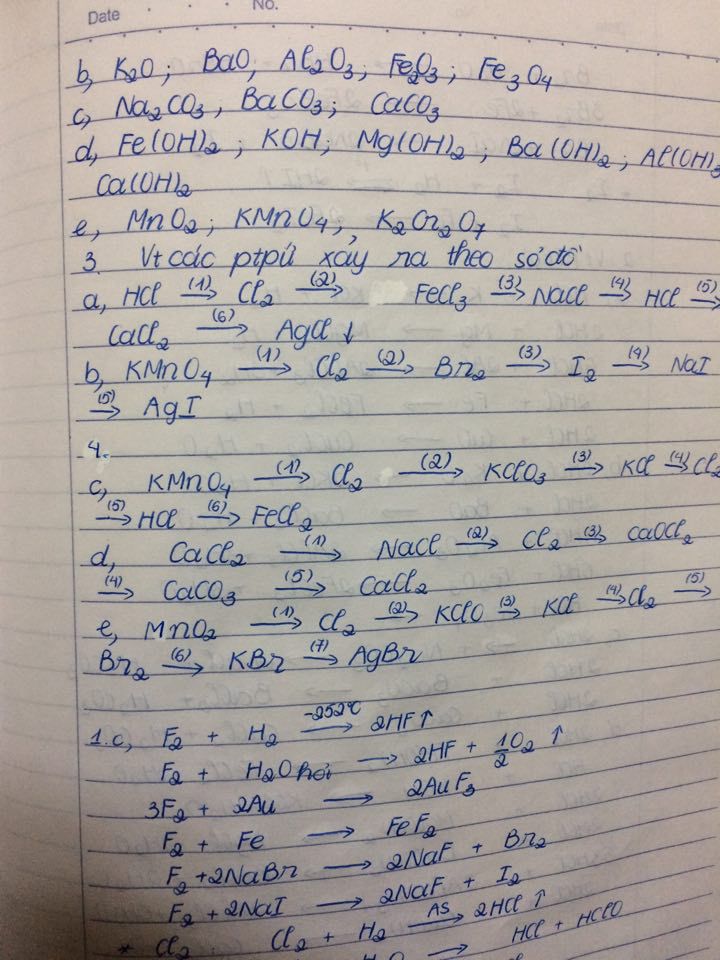 Date No.
b, K₂O ; BaO, Al₂O₃ ; Fe₂O₃ ; Fe₃O₄
c, Na₂CO₃ , BaCO₃ ; CaCO₃
d, Fe(OH)₂ ; KOH ; Mg(OH)₂ ; Ba(OH)₂ ; Al(OH)₃
Ca(OH)₂
e, MnO₂ ; KMnO₄ ; K₂Cr₂O₇
3. Vt các ptpứ xảy ra theo sơ đồ
a, HCl (1)→ Cl₂ (2)→ FeCl₃ (3)→ NaCl (4)→ HCl (5)→
CaCl₂ (6)→ AgCl ↓
b, KMnO₄ (1)→ Cl₂ (2)→ Br₂ (3)→ I₂ (4)→ NaI
(5)→ AgI
4.
c, KMnO₄ (1)→ Cl₂ (2)→ KClO₃ (3)→ KCl (4)→ Cl₂
(5)→ HCl (6)→ FeCl₂
d, CaCl₂ (1)→ NaCl (2)→ Cl₂ (3)→ CaOCl₂
(4)→ CaCO₃ (5)→ CaCl₂
e, MnO₂ (1)→ Cl₂ (2)→ KClO (3)→ KCl (4)→ Cl₂ (5)→
Br₂ (6)→ KBr (7)→ AgBr
1.c, F₂ + H₂ -252°C→ 2HF ↑
F₂ + H₂O hơi → 2HF + 1/2 O₂ ↑
3F₂ + 2Au → 2AuF₃
F₂ + Fe → FeF₂
F₂ + 2NaBr → 2NaF + Br₂
F₂ + 2NaI → 2NaF + I₂
* Cl₂ : Cl₂ + H₂ AS→ 2HCl ↑
→ HCl + HClO